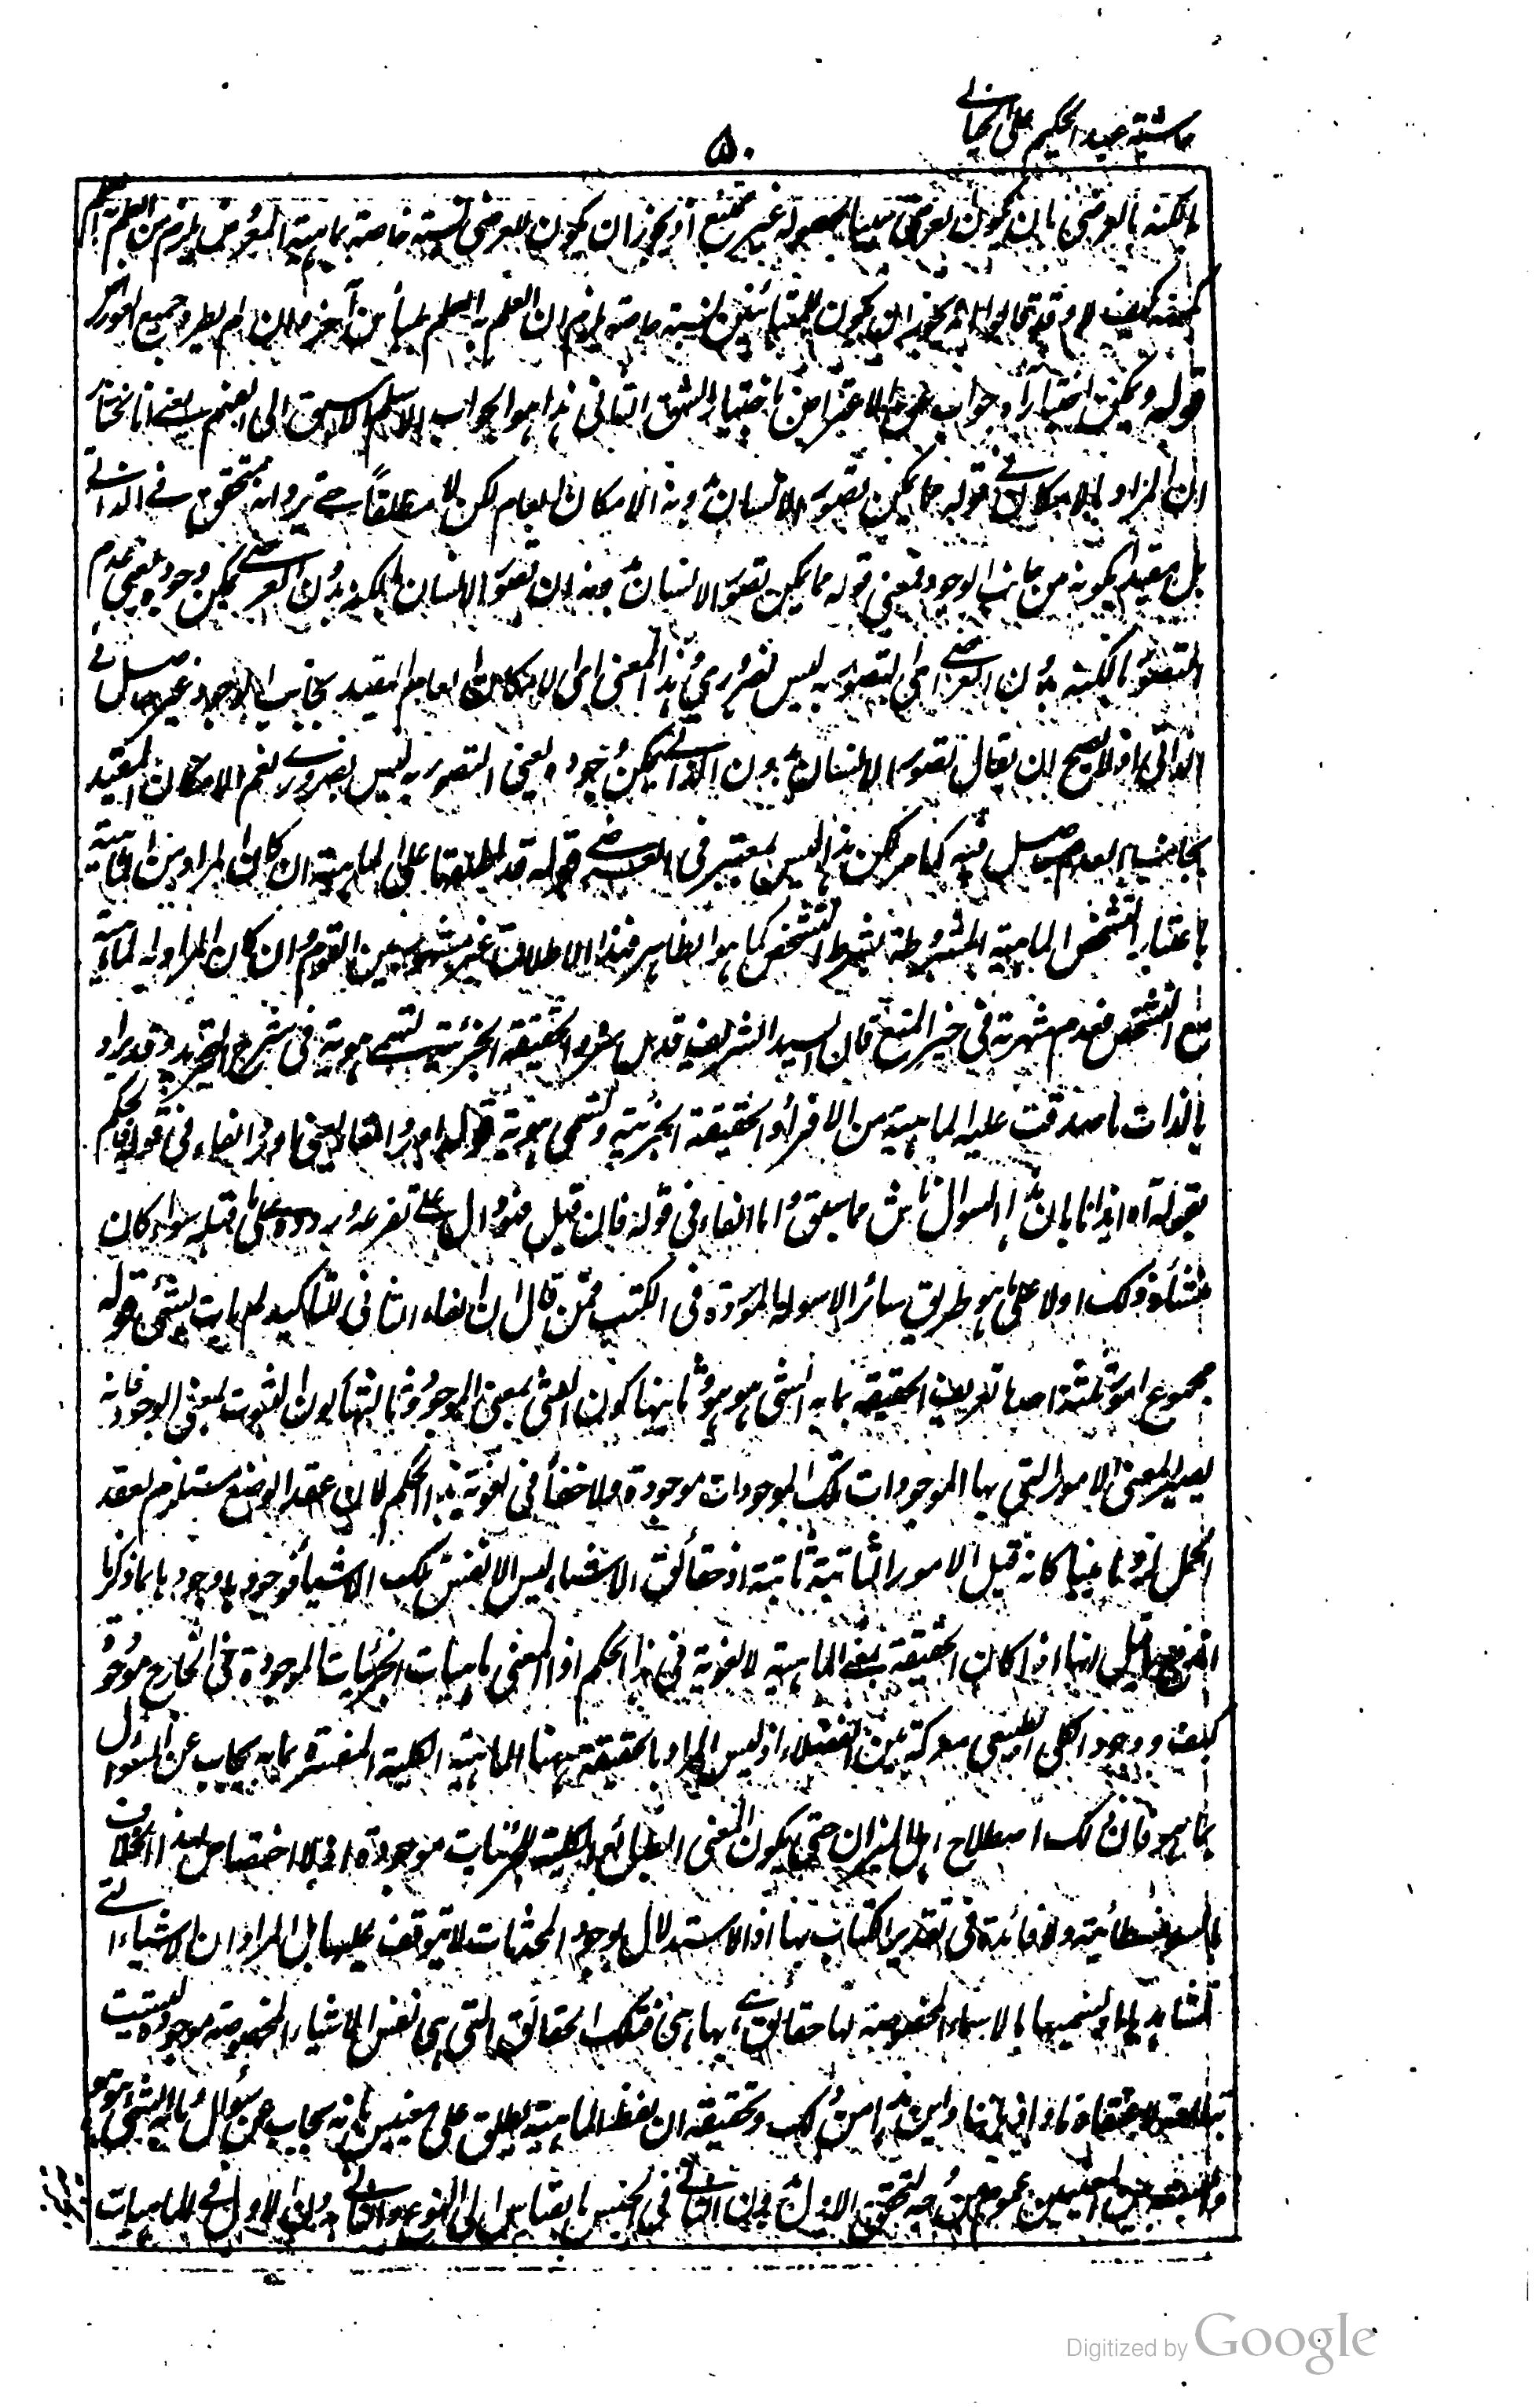 حاشية عبد الحكيم على الخيالي
٥٠
بالكنه بالعرضي بان يكون العرضي سببا لحصوله غير ممتنع اذ يجوز ان يكون للعرضي نسبة خاصة بماهية المعروض يلزم من العلم به العلم
بكنهه كيف لا وقد قالوا انه يجوز ان يكون للمتباينين نسبة خاصة يلزم ان العلم به العلم بمباين آخر وان لم يطرد جميع
قوله ويمكن اختيار اه جواب عن الاعتراض باختيار الشق الثاني هذا هو الجواب الاسلم الاسبق الى الفهم يعني انا نختار
ان المراد بالامكان في قوله مما يمكن تصور الانسان بدونه الامكان العام لكن لا مطلقاً حتى يرد انه متحقق في الذاتي
بل مقيدا بكونه من جانب الوجود فمعنى قوله مما يمكن تصور الانسان بدونه ان تصور الانسان بالكنه بدون العرضي يمكن وجوده يعني عدم
التصور بالكنه بدون العرضي اي التصور به ليس بضروري وهذا المعنى اي الامكان العام المقيد بجانب الوجود غير حاصل في
الذاتي اذ لا يصح ان يقال تصور الانسان بدون الذاتي يمكن وجوده يعني التصور به ليس بضروري نعم الامكان المقيد
بجانب العدم حاصل فيه كما مر لكن هذا ليس بمعتبر في العرضي قوله قد اطلقها على الماهية ان كان المراد من الماهية
باعتبار التشخص الماهية المشروطة بشرط التشخص كما هو الظاهر فهذا الاطلاق غير مشهور بين القوم وان كان المراد به الماهية
مع التشخص فعدم شهرته في حيز المنع قال السيد الشريف قدس سره الحقيقة الجزئية تسمى هوية في شرح التجريد وقد يراد
بالذات ما صدقت عليه الماهية من الافراد والحقيقة الجزئية وتسمى هوية قوله اورد الفاء يعني اورد الفاء في قوله فالحكم
بقوله آه ايذانا بان هذا السؤال ناش مما سبق واما الفاء في قوله فان قيل فدال على تفرعه ووروده على قبله سواء كان
منشأه ذلك اولا على ما هو طريق سائر الاسولة الموردة في الكتب فمن قال ان الفاء الثاني للتأكيد لم يأت بشئ قوله
مجموع امور ثلثة احدها تعريف الحقيقة بما به الشئ هو هو وثانيها كون الشئ بمعنى الموجود وثالثها كون الثبوت بمعنى الوجود فانه
يصير المعنى الامور التي بها الموجودات تلك الموجودات موجودة ولا خفأ في لغوية هذا الحكم لان عقد الوضع مستلزم لعقد
الحمل لزوما بينا كانه قيل الامور الثابتة ثابتة اذ حقائق الاشياء ليس الا نفس تلك الاشياء فوجودها وجودها بما ذكرنا
اندفع ما قيل انها اذا كان الحقيقة بمعنى الماهية لا لغوية في هذا الحكم اذ المعنى ماهيات الجزئيات الموجودة في الخارج موجودة
كيف ووجود الكلي الطبيعي معركة بين الفضلاء اذ ليس المراد بالحقيقة ههنا الماهية الكلية المفسرة بما به يجاب عن السؤال
بما هو فان ذلك اصطلاح اهل الميزان حتى يكون المعنى الطبائع الكلية للجزئيات موجودة اذ لا اختصاص لهذا الخلاف
بالسوفسطائية ولا فائدة في تقدير اثباتها اذ الاستدلال بوجود المحدثات لا يتوقف عليها بل المراد ان الاشياء التي
نشاهدها ونسميها بالاسماء المخصوصة لها حقائق هي بها هي فتلك الحقائق التي هي نفس الاشياء المخصوصة موجودة ليست
لاعتقادنا واني هذا واين هذا من ذلك وتحقيقه ان لفظ الماهية يطلق على معنيين ما به يجاب عن سؤال ما به الشئ هو هو
المعنيين عموم من وجه لتحقق الاول بدون الثاني في الجنس بالقياس الى النوع والثاني بدون الاول في الماهيات
Digitized by Google